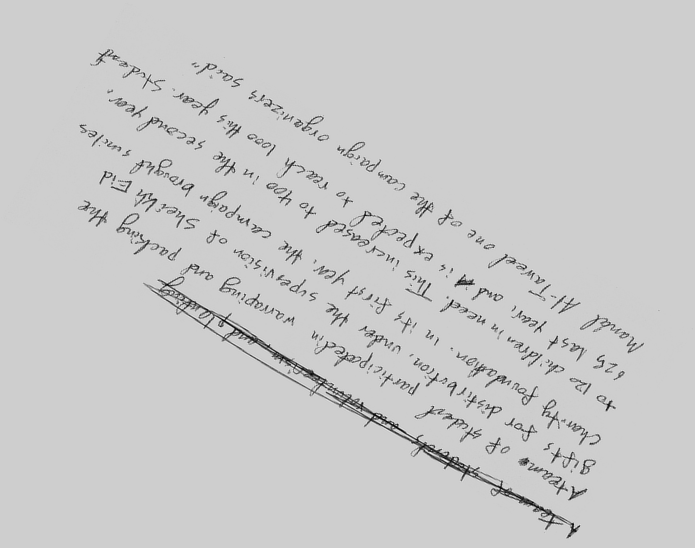 A team of students and and planting
A team of student participated in warraping and packing the
gifts for distribution, under the supervision of Sheikh Eid
charity foundation. in its first year, the campaign brought smiles
to 120 children in need. This increased to 400 in the second year,
625 last year, and it is expected to reach 1000 this year. student
Mandil Al-Taweed one of the campaign organizers said"